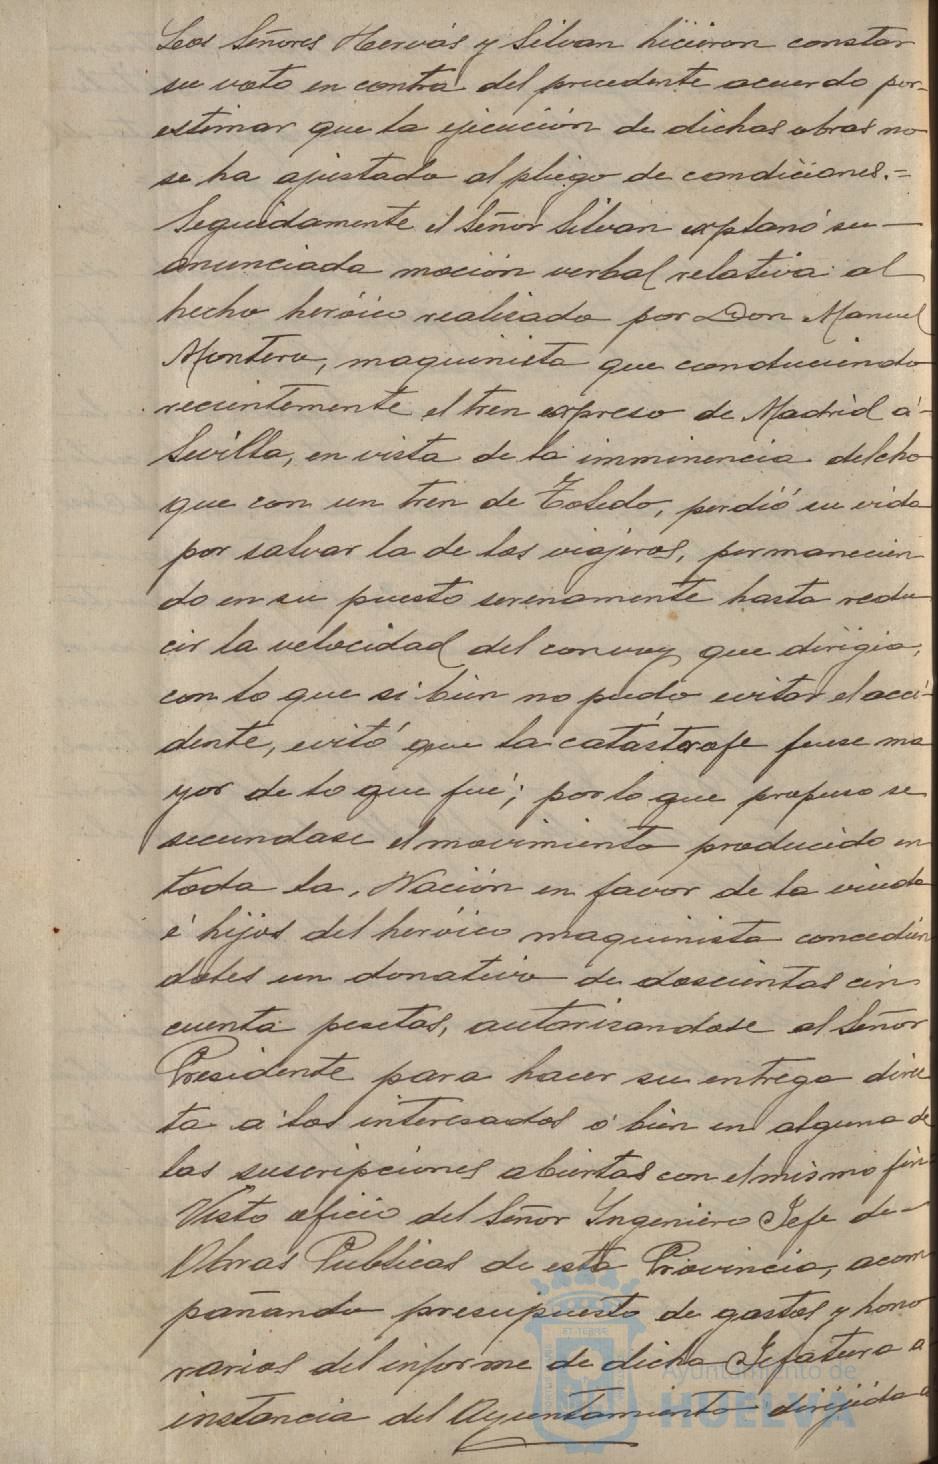 Los Señores Hervás y Silvan hicieron constar
su voto en contra del precedente acuerdo por
estimar que la ejecución de dichas obras no
se ha ajustado al pliego de condiciones.=
Seguidamente el Señor Silvan explanó su —
anunciada moción verbal relativa al
hecho heróico realizado por Don Manuel
Montero, maquinista que conduciendo
recientemente el tren expreso de Madrid á
Sevilla, en vista de la imminencia del cho
que con un tren de Toledo, perdió su vida
por salvar la de los viajeros, permanecien
do en su puesto serenamente hasta redu
cir la velocidad del convoy que dirigia,
con lo que si bien no pudo evitar el acci-
dente, evitó que la catástrofe fuese ma
yor de lo que fué; por lo que propuso se
secundase el movimiento producido en
toda la Nación en favor de la viuda
é hijos del heróico maquinista concedien
doles un donativo de doscientas cin
cuenta pesetas, autorizandose al Señor
Presidente para hacer su entrega direc
ta á los interesados ó bien en alguna de
las suscripciones abiertas con el mismo fin.
Visto oficio del Señor Ingeniero Jefe de —
Obras Publicas de esta Provincia, acom
pañando presupuesto de gastos y hono
rarios del informe de dicha Jefatura a
instancia del Ayuntamiento dirijida a
Ayuntamiento de
HUELVA